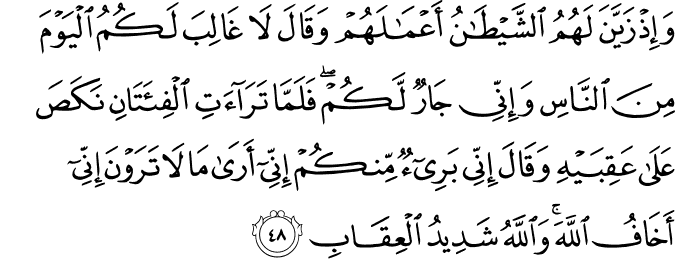 وَإِذْ زَيَّنَ لَهُمُ ٱلشَّيْطَـٰنُ أَعْمَـٰلَهُمْ وَقَالَ لَا غَالِبَ لَكُمُ ٱلْيَوْمَ
مِنَ ٱلنَّاسِ وَإِنِّى جَارٌ لَّكُمْ ۖ فَلَمَّا تَرَآءَتِ ٱلْفِئَتَانِ نَكَصَ
عَلَىٰ عَقِبَيْهِ وَقَالَ إِنِّى بَرِىٓءٌ مِّنكُمْ إِنِّىٓ أَرَىٰ مَا لَا تَرَوْنَ إِنِّىٓ
أَخَافُ ٱللَّهَ ۚ وَٱللَّهُ شَدِيدُ ٱلْعِقَابِ ٤٨